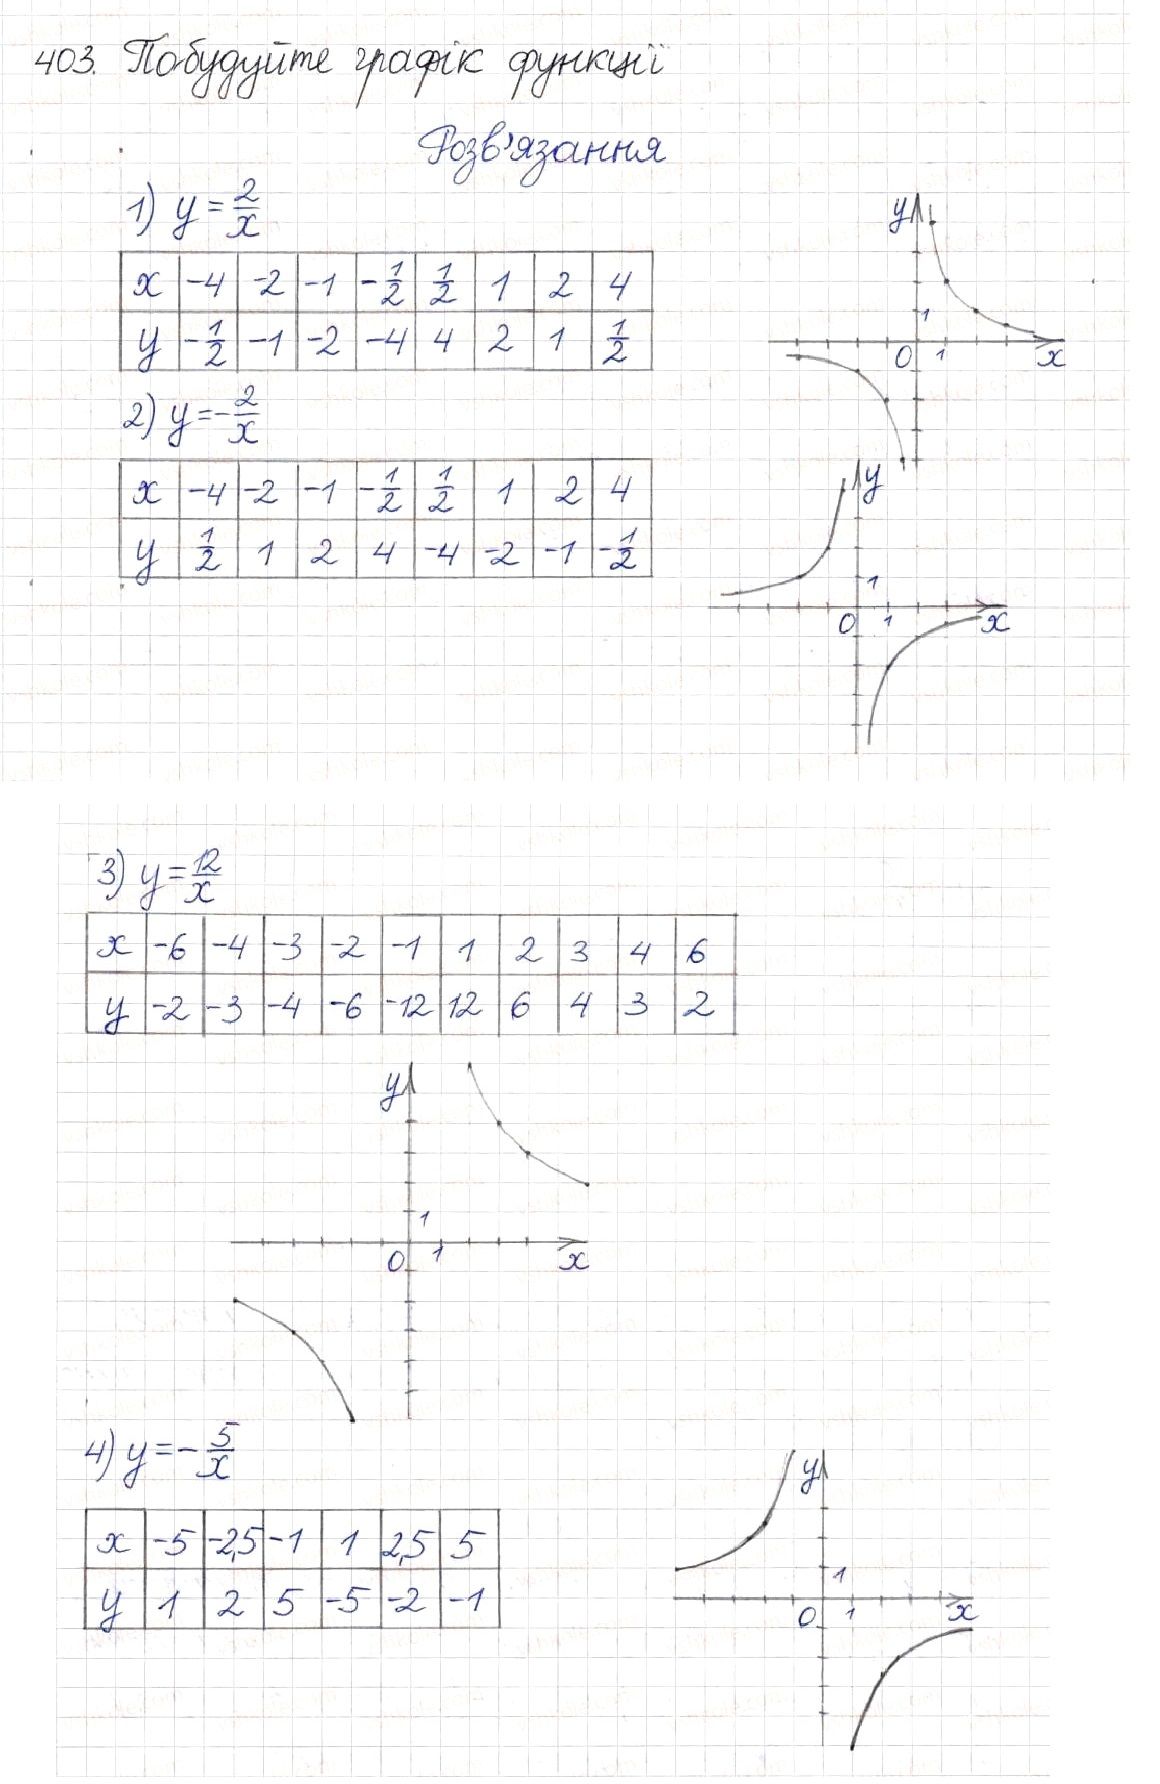 403. Побудуйте графік функції
Розв'язання
1) y = 2/x
x -4 -2 -1 -1/2 1/2 1 2 4
y -1/2 -1 -2 -4 4 2 1 1/2
y
1
0 1 x
2) y = -2/x
x -4 -2 -1 -1/2 1/2 1 2 4
y 1/2 1 2 4 -4 -2 -1 -1/2
y
1
0 1 x
3) y = 12/x
x -6 -4 -3 -2 -1 1 2 3 4 6
y -2 -3 -4 -6 -12 12 6 4 3 2
y
1
0 1 x
4) y = -5/x
x -5 -2,5 -1 1 2,5 5
y 1 2 5 -5 -2 -1
y
1
0 1 x